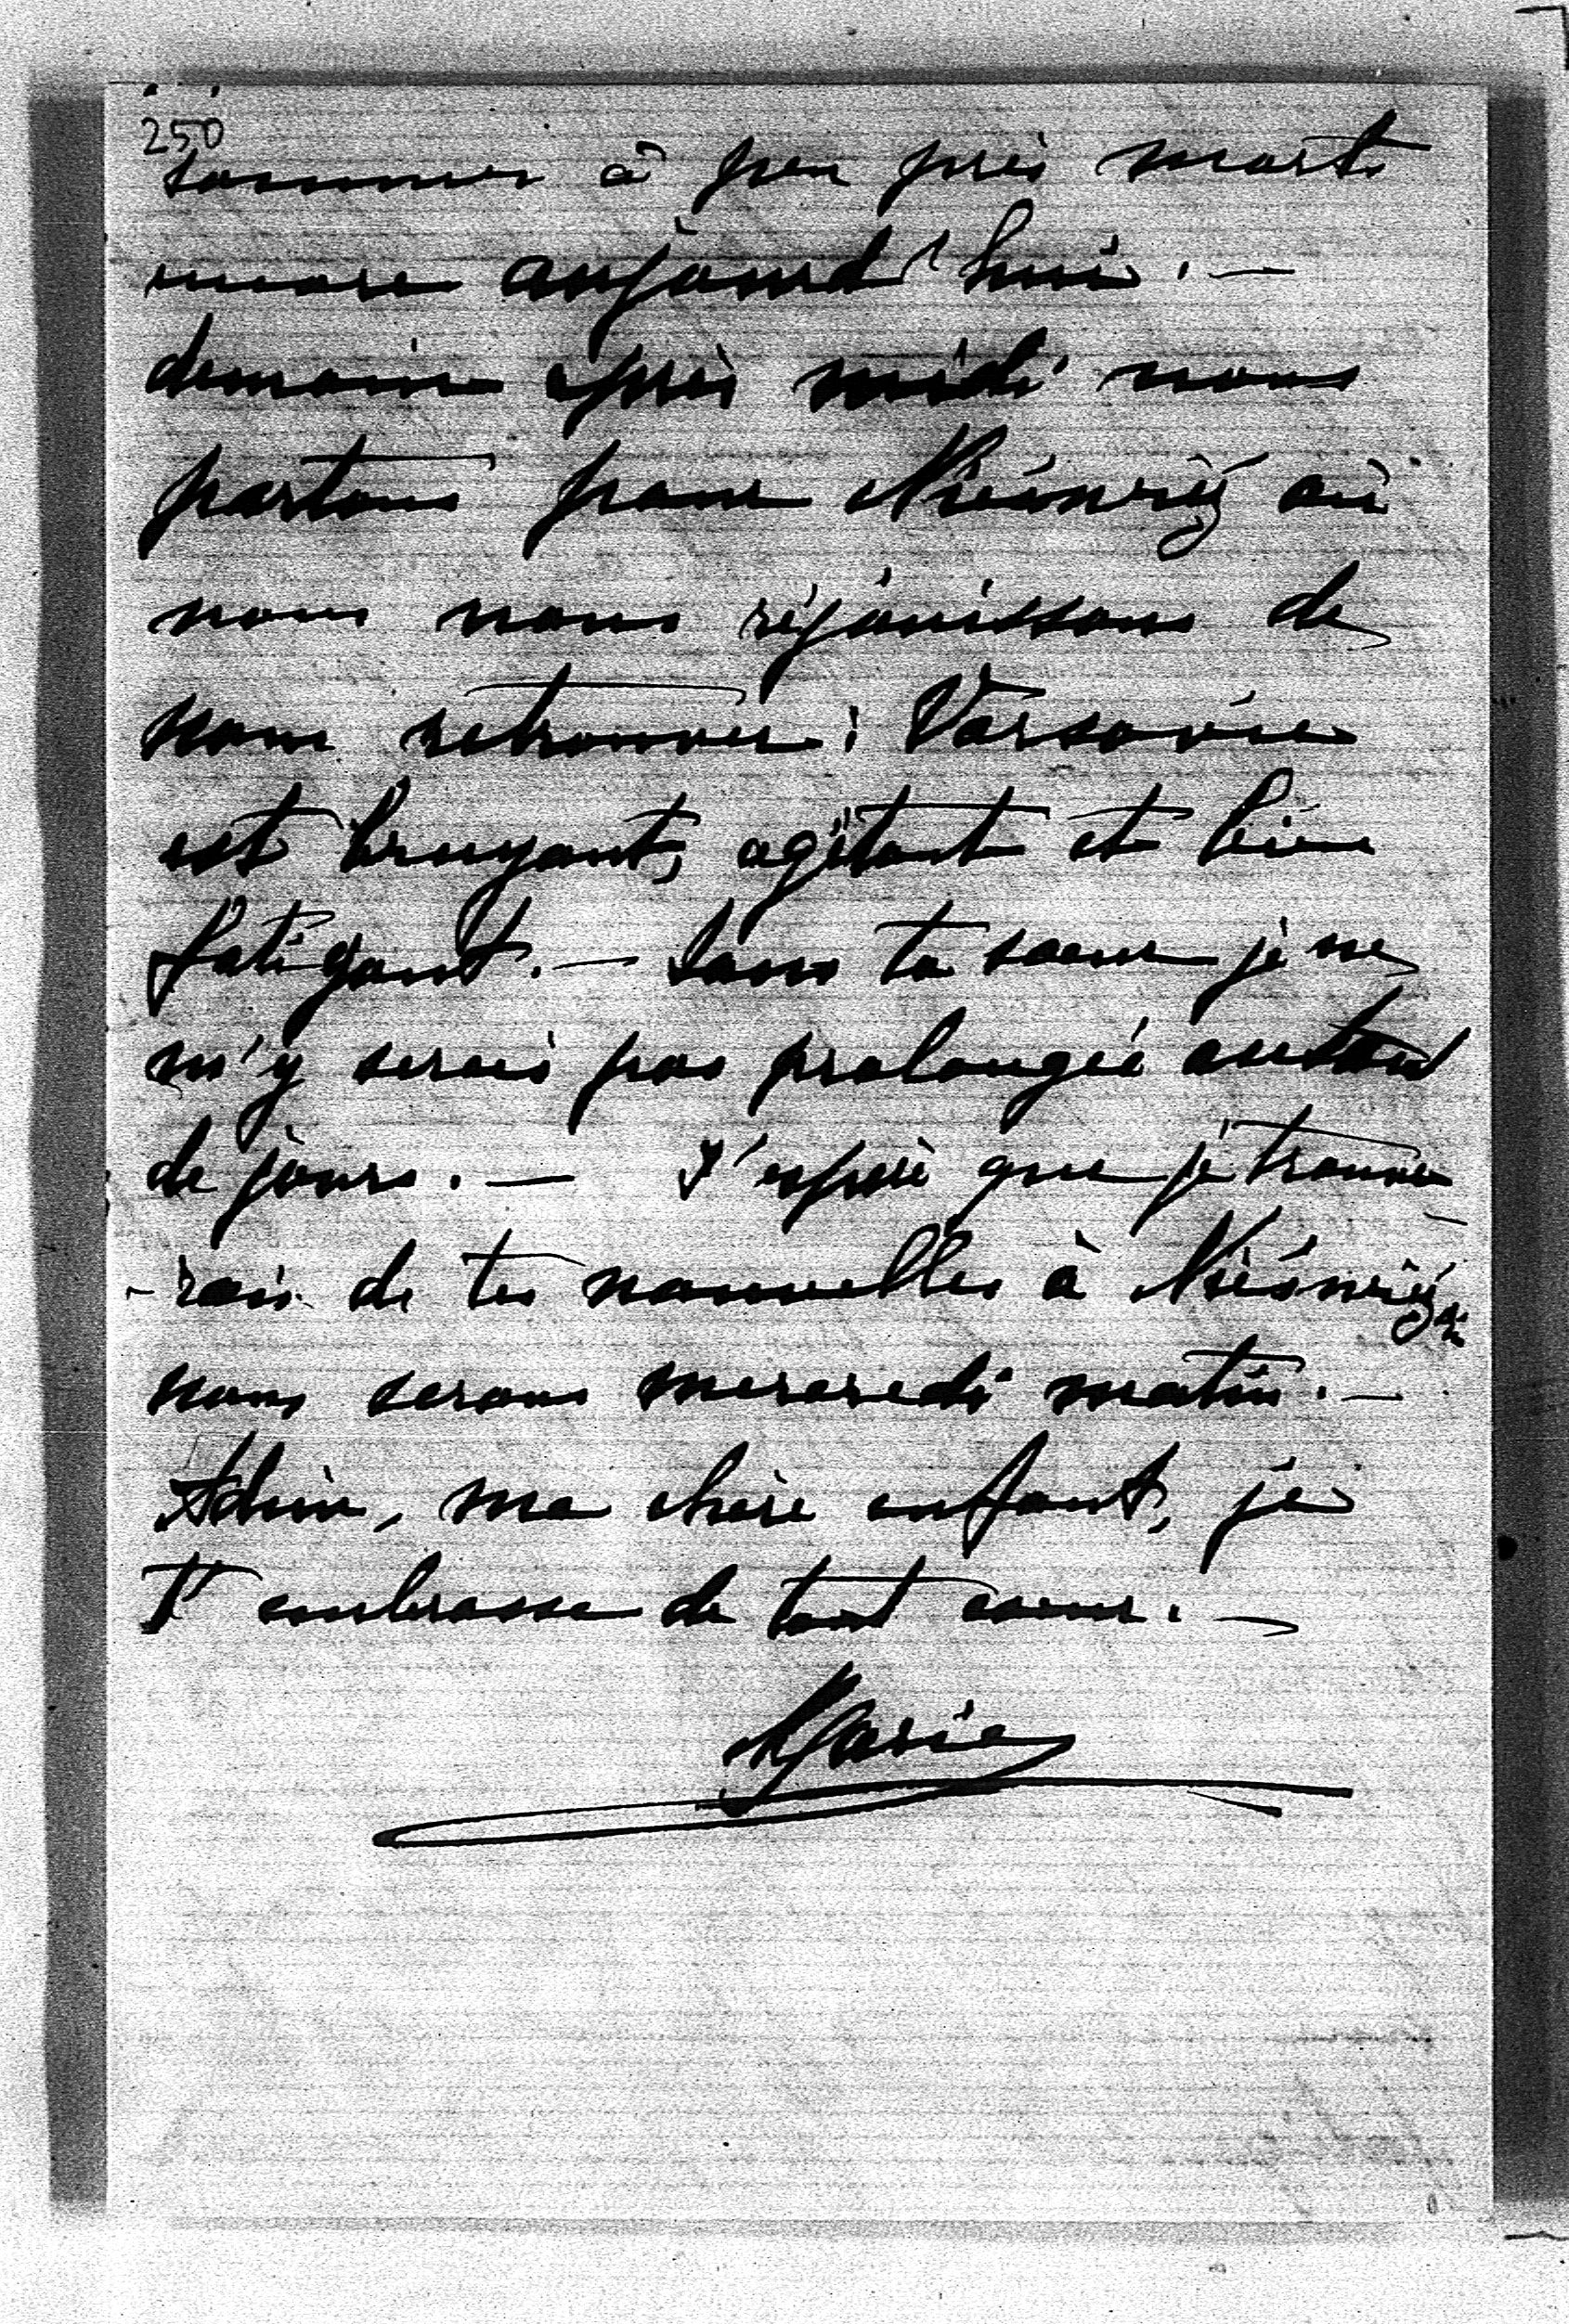 250
sommes à peu près morts
encore aujourd'hui. —
demain après midi nous
partons pour Nieświéz où
nous nous réjouissons de
nous retrouver: Varsovie
est bruyant, agitant et bien
fatigant. — Sans ta soeur je ne
m'y serais pas prolongée autant
de jours. — J'espère que je trouve-
-rais de tes nouvelles à Nieświéz où
nous serons mercredi matin. —
Adieu, ma chère enfant, je
t'embrasse de tout coeur. —
Marie